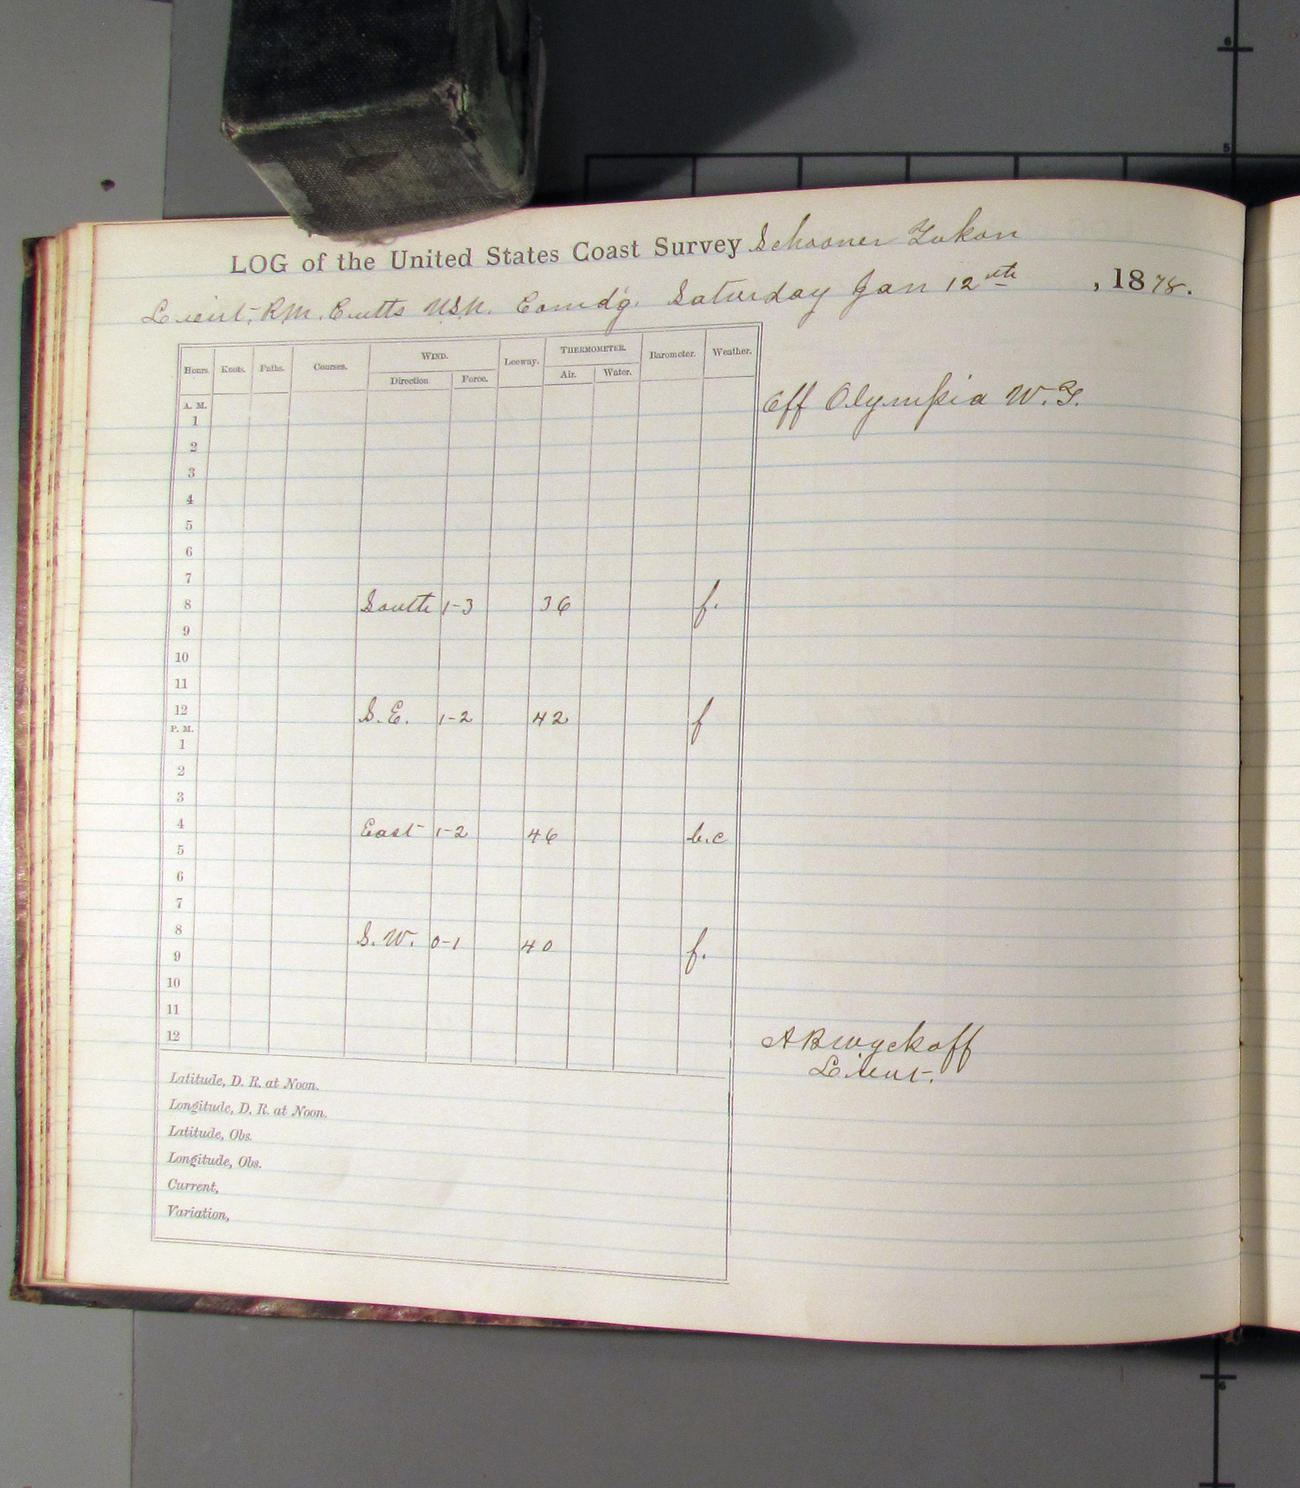 LOG of the United States Coast Survey Schooner Yukon
Lieut. R.M. Cutts U.S.N. Comdg. Saturday Jan 12th, 1878.
Hours. Knots. Faths. Courses. WIND. Leeway. THERMOMETER. Barometer. Weather.
Direction Force. Air. Water.
A. M.
Off Olympia W.T.
1
2
3
4
5
6
7
8 South 1-3 36 f.
9
10
11
12 S.E. 1-2 42 f
P. M.
1
2
3
4 East 1-2 46 b.c
5
6
7
8 S.W. 0-1 40 f.
9
10
11
12
A B Wyckoff
Lieut.
Latitude, D. R. at Noon.
Longitude, D. R. at Noon.
Latitude, Obs.
Longitude, Obs.
Current,
Variation,
6
5
6